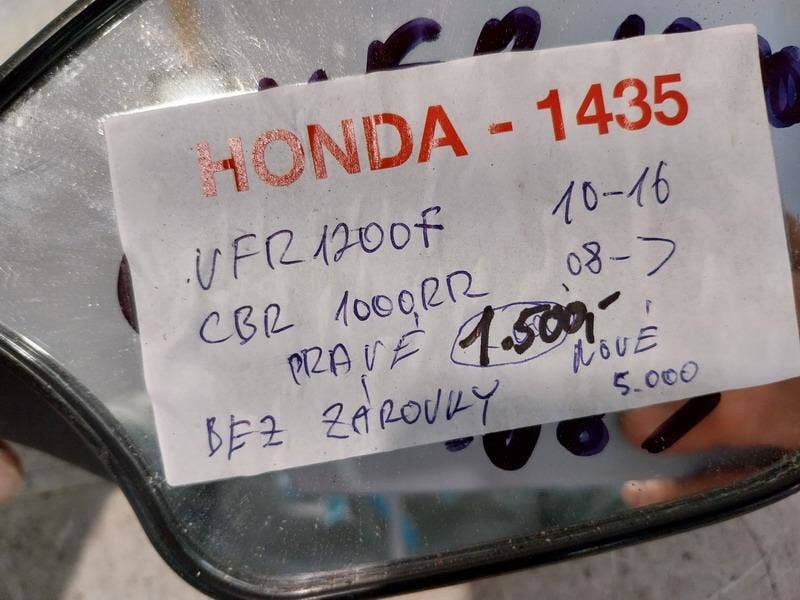 HONDA - 1435
VFR1200F 10-16
CBR 1000RR 08->
PRAVÉ 1.500,- NOVÉ
BEZ ŽÁROVKY 5.000